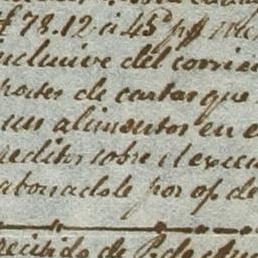 78.12 á 45
inclusive del corrien
portes de cartas que
un alimentos en e
reditos sobre el exce
abonadole por op de
recibido de P. de